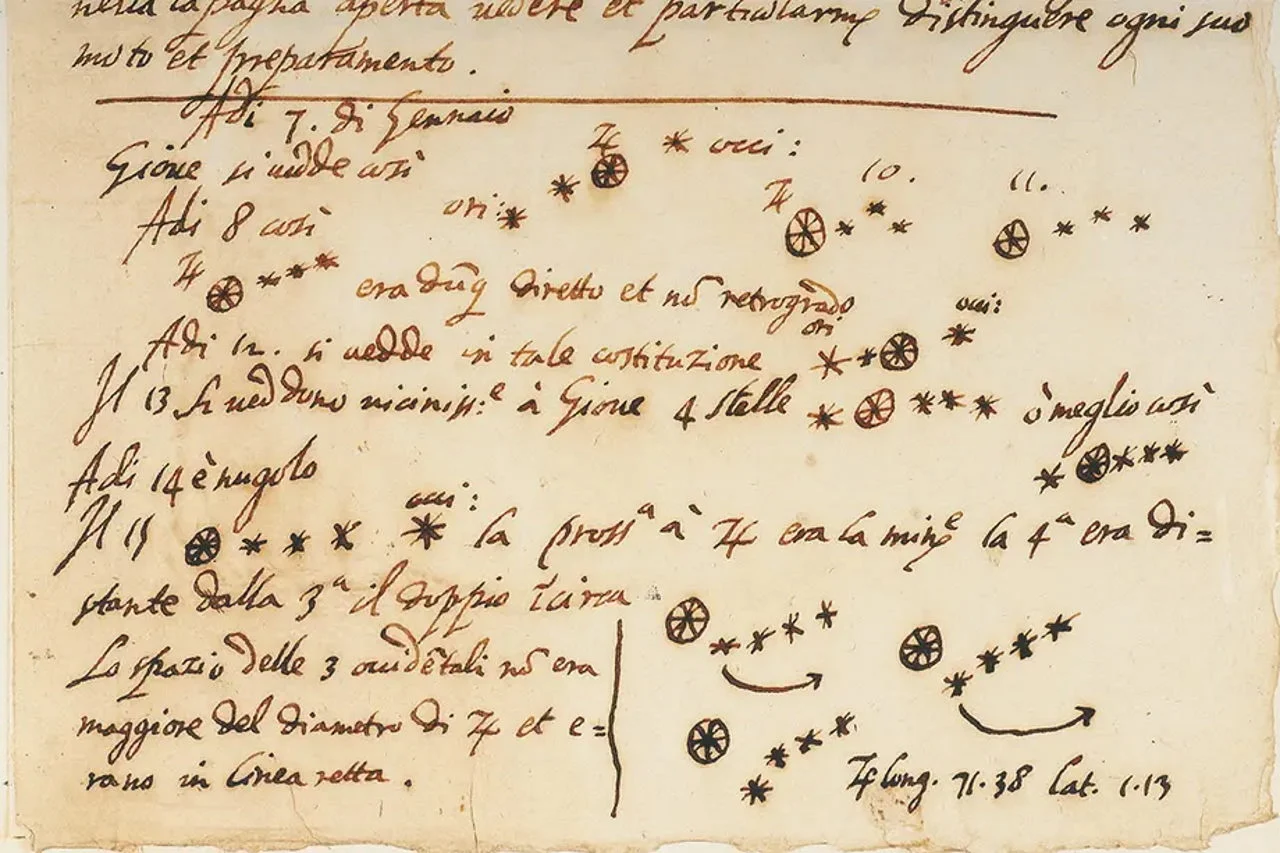 nella capagna aperta vedere et particolarmᵉ distinguere ogni suo
moto et preparamento.
Adi 7. di Gennaio
Giove si vedde così ♃ occi:
ori:
Adi 8 così ♃ 10. 11.
♃ era dūq diretto et nō retrogrado
Adi 12. si vedde in tale costituzione ori occi:
Il 13 si veddono viciniss:ᵉ à Giove 4 stelle ò meglio così
Adi 14 è nugolo
Il 15 occi: la prossᵃ à ♃ era la minᵉ la 4ᵃ era di=
stante dalla 3ᵃ il doppio ī circa
Lo spazio delle 3 occidētali nō era
maggiore del diametro di ♃ et e=
rano in linea retta.
♃ long. 71.38 lat. 1.13